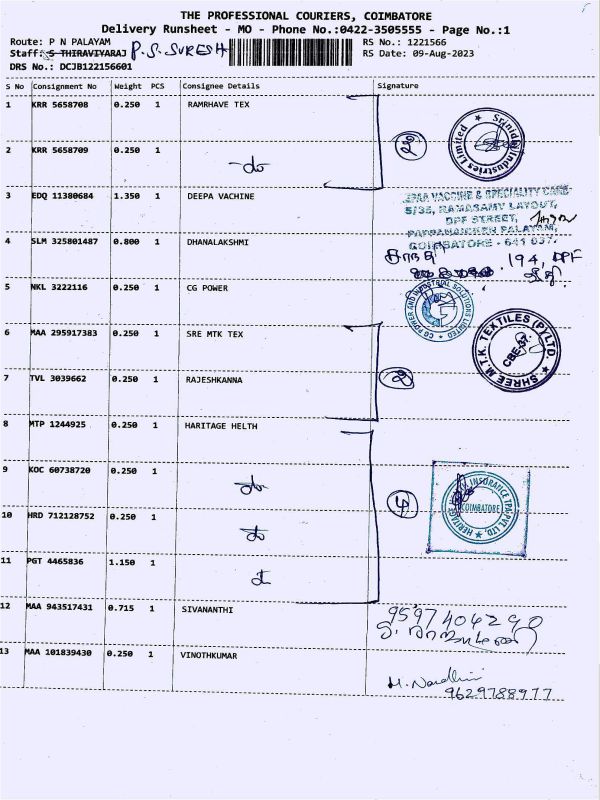 THE PROFESSIONAL COURIERS, COIMBATORE
Delivery Runsheet - MO - Phone No.:0422-3505555 - Page No.:1
Route: P N PALAYAM
RS No.: 1221566
Staff: S THIRAVIYARAJ P.S. SURESH
RS Date: 09-Aug-2023
DRS No.: DCJB122156601
S No Consignment No Weight PCS Consignee Details Signature
1 KRR 5658708 0.250 1 RAMRHAVE TEX
2
Srinidhi Industries Limited
2 KRR 5658709 0.250 1 -do-
3 EDQ 11380684 1.350 1 DEEPA VACHINE
VACCINE & SPECIALITY CARE
5/35, RAMASAMY LAYOUT,
DPF STREET,
PAPPANAICKEN PALAYAM,
COIMBATORE - 641 037.
4 SLM 325801487 0.800 1 DHANALAKSHMI
194, DPF
5 NKL 3222116 0.250 1 CG POWER
CG POWER AND INDUSTRIAL SOLUTIONS LIMITED
6 MAA 295917383 0.250 1 SRE MTK TEX
SHREE M.T.K. TEXTILES (P) LTD.
CBE-37.
7 TVL 3039662 0.250 1 RAJESHKANNA
2
8 MTP 1244925 0.250 1 HARITAGE HELTH
9 KOC 60738720 0.250 1 do
4
HERITAGE HEALTH INSURANCE TPA PVT. LTD.
COIMBATORE
10 HRD 712128752 0.250 1 do
11 PGT 4465836 1.150 1 do
12 MAA 943517431 0.715 1 SIVANANTHI
9597404290
13 MAA 101839430 0.250 1 VINOTHKUMAR
M. Nandhini
9629788977